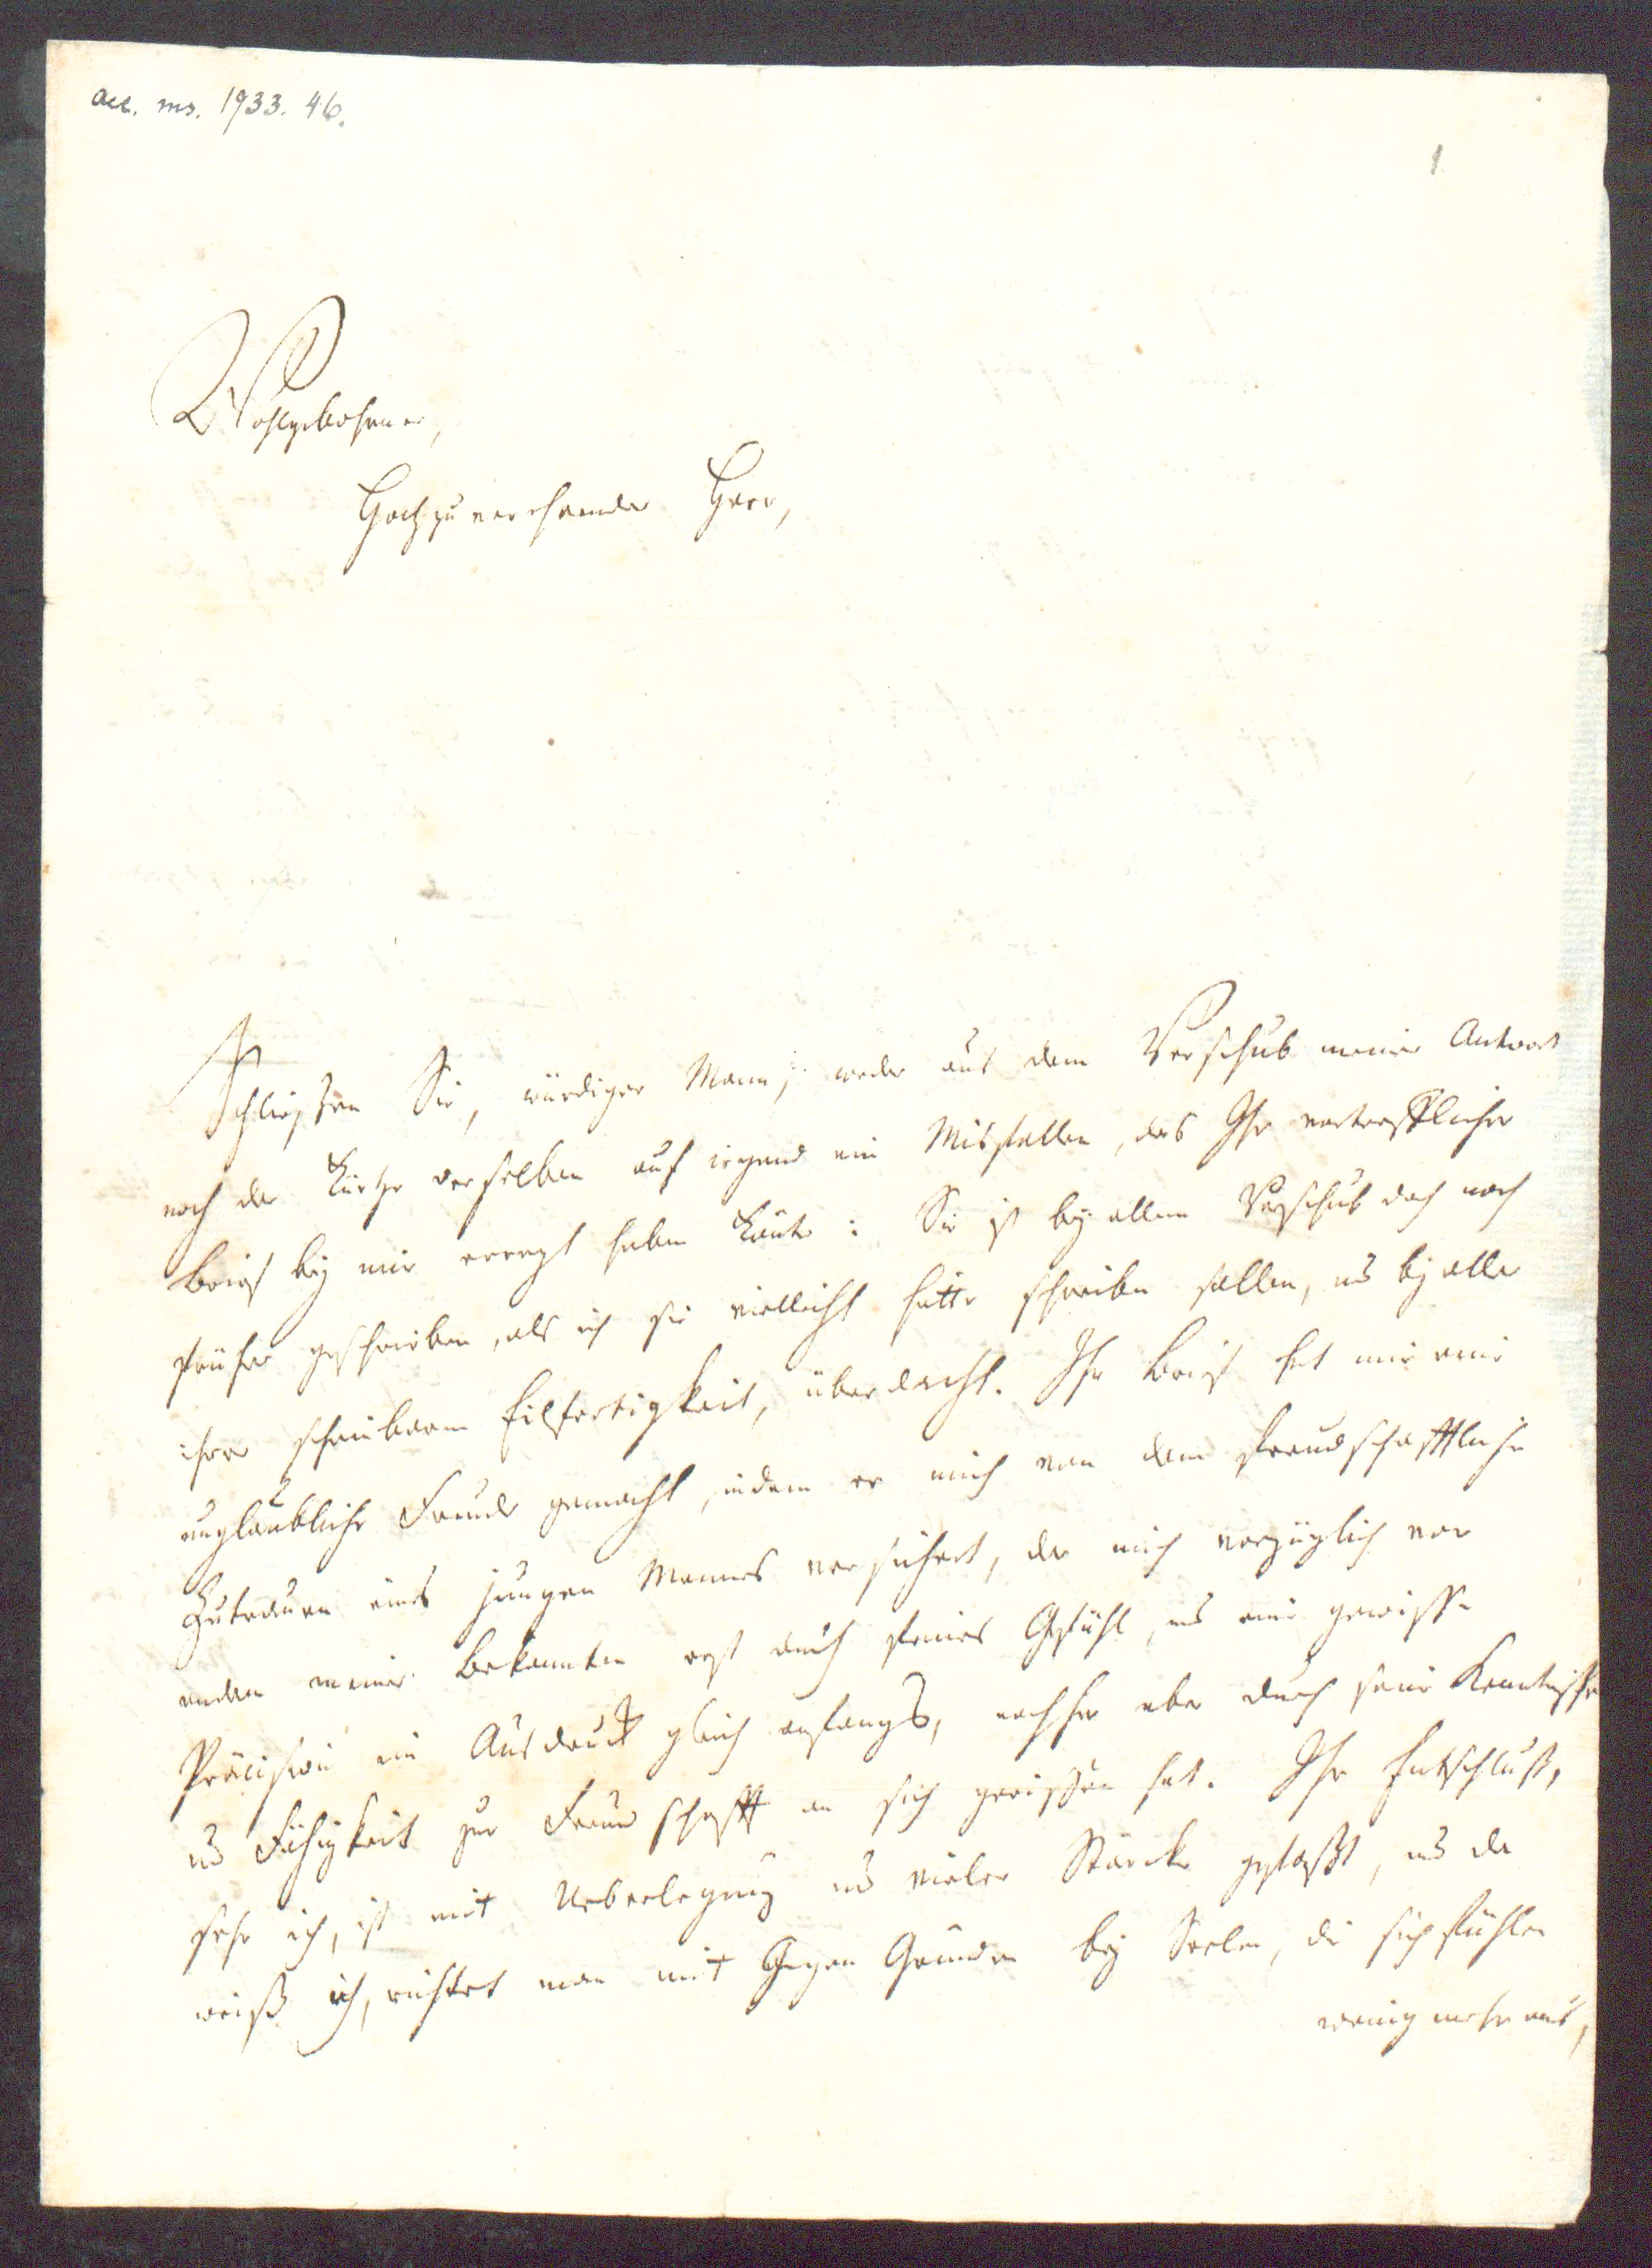 acc. ms. 1933. 46.
1
Wohlgebohrner,
Hochzuverehrender Herr,
Schliessen Sie, würdiger Mann, weder aus dem Verschub meiner Antwort
noch der Kürtze derselben auf irgend ein Misfallen, das Ihr vortrefflicher
Brief bey mir erregt haben könte: Sie ist bey allem Verschub doch noch
früher geschrieben, als ich sie vielleicht hätte schreiben sollen, und bey aller
ihrer scheinbaren Eilfertigkeit, überdacht. Ihr Brief hat mir eine
unglaubliche Freude gemacht, indem er mich von dem freundschafftlichen
Zutrauen eines jungen Mannes versichert, der mich vorzüglich vor
andern meiner Bekannten erst durch feines Gefühl, und eine gewisse
Präcision im Ausdruck gleich anfangs, nachher aber durch seine Kenntnisse
und Fähigkeit zur Freundschafft an sich gerissen hat. Ihr Entschluß,
sehe ich, ist mit Ueberlegung und vieler Stärcke gefaßt, und da
weiß ich, richtet man mit Gegen Gründen bey Seelen, die sich fühlen
wenig mehr aus,